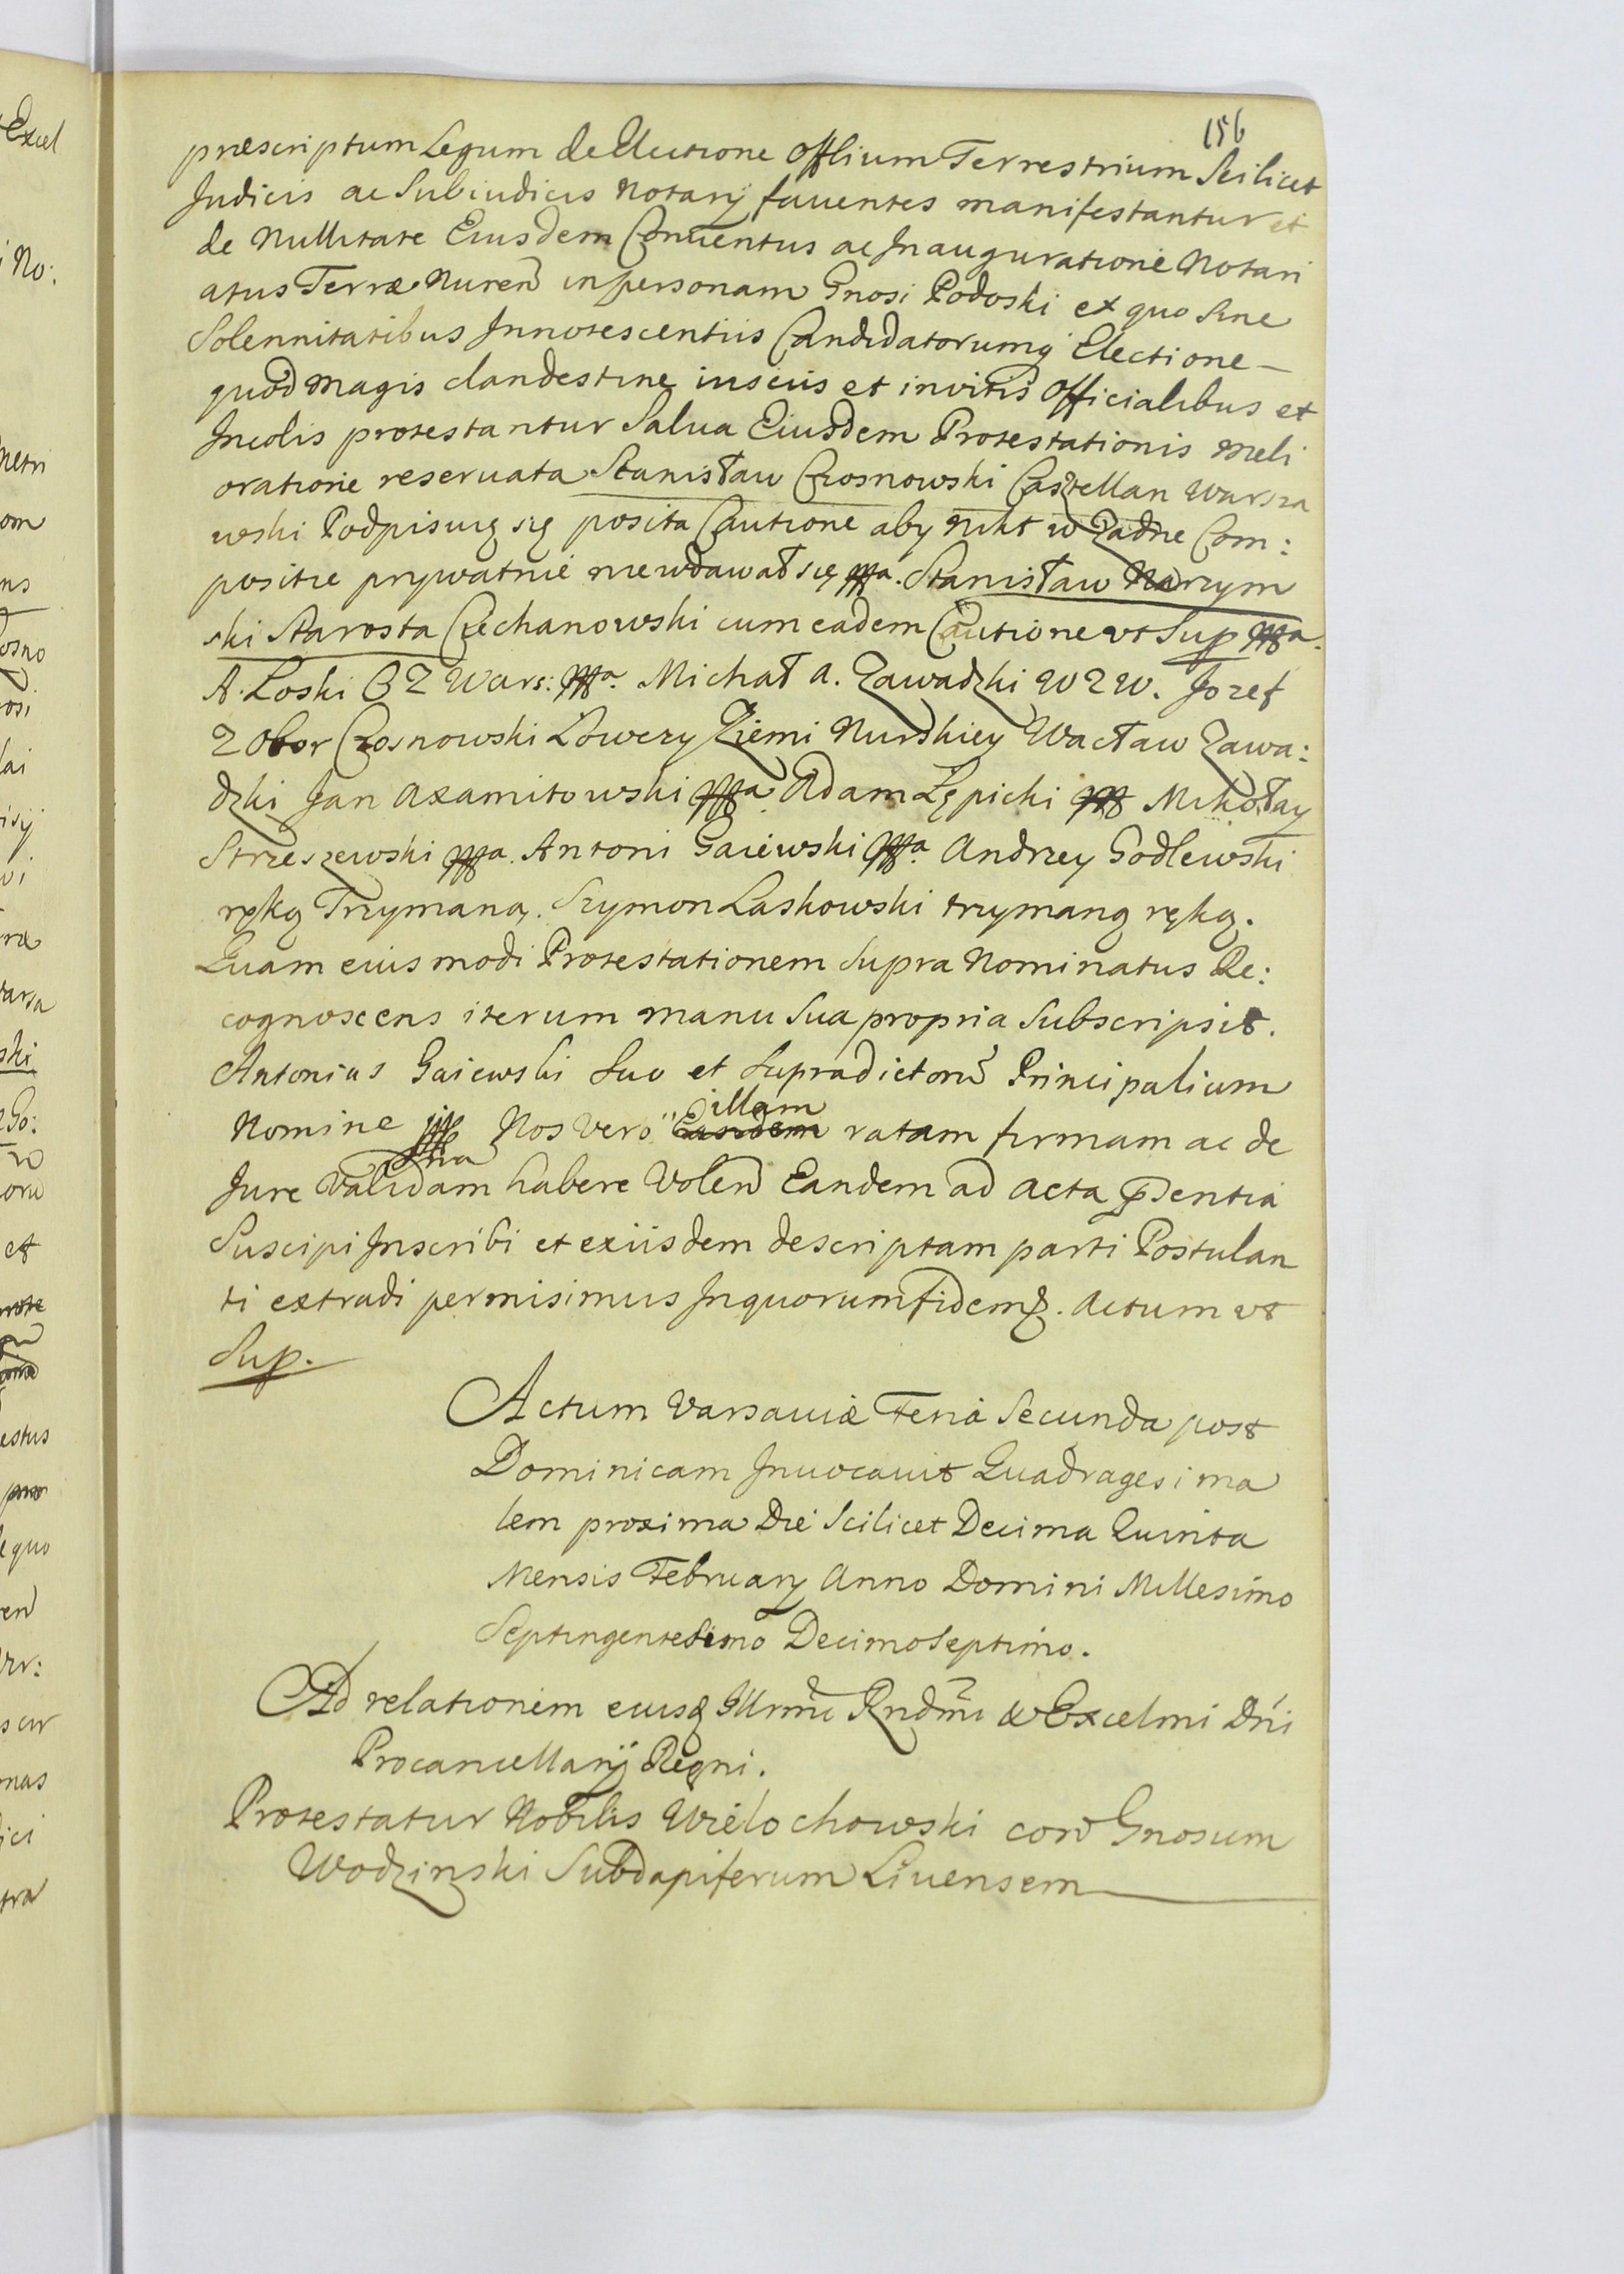 156
præscriptum Legum de Electione Offlium Terrestrium Scilicet
Judicis ac Subiudicis Notarÿ fauentes manifestantur et
de Nullitate Eiusdem Conuentus ac Inauguratione Notari
atus Terræ Nuren in personam Gnosi Podoski ex quo sine
Solennitatibus Innotescentiis Candidatorumq Electione
quod magis clandestine insciis et invitis Officialibus et
Incolis protestantur Salua Eiusdem Protestationis meli
oratione reseruata Stanisław Czosnowski Casztellan Warsza
wski Podpisuię się posita Cautione aby nikt w Zadne Com:
positie prywatnie niewdawał się mpa. Stanisław Narzym
ski Starosta Ciechanowski cum eadem Cautione ut Sup mpa.
A. Łoski C Z Wars: mpa. Michał A. Zawadzki W Z W. Jozef
z Obor Czosnowski Łowczy Ziemi Nurskiey Wacław Zawa:
dzki Jan Axamitowski mpa Adam Lępicki mp Mikołay
Strzeszewski mpa. Antoni Gaiewski mpa Andrzey Godlewski
ręką Trzymaną. Szymon Laskowski trzymaną ręką.
Quam eius modi Protestationem Supra Nominatus Re:
cognoscens iterum manu Sua propria Subscripsit.
Antonius Gaiewski Suo et Supradictoru Principalium
Nomine mp Nos Vero illam Eandem ratam firmam ac de
Jure Validam habere Volen Eandem ad Acta psentia
Suscipi Inscribi et exiisdem descriptam parti Postulan
ti extradi permisimus In quorum fidem. Actum ut
Sup.
Actum Varsauiæ Feria Secunda post
Dominicam Inuocauit Quadragesima
lem proxima Die Scilicet Decima Quinta
Mensis Februarÿ Anno Domini Millesimo
Septingentesimo Decimo Septimo.
Ad relationem eiusd Illrmi Rndmi & Excelmi Dni
Procancellarÿ Regni.
Protestatur Nobilis Wielochowski con Gnosum
Wodzinski Subdapiferum Liuensem